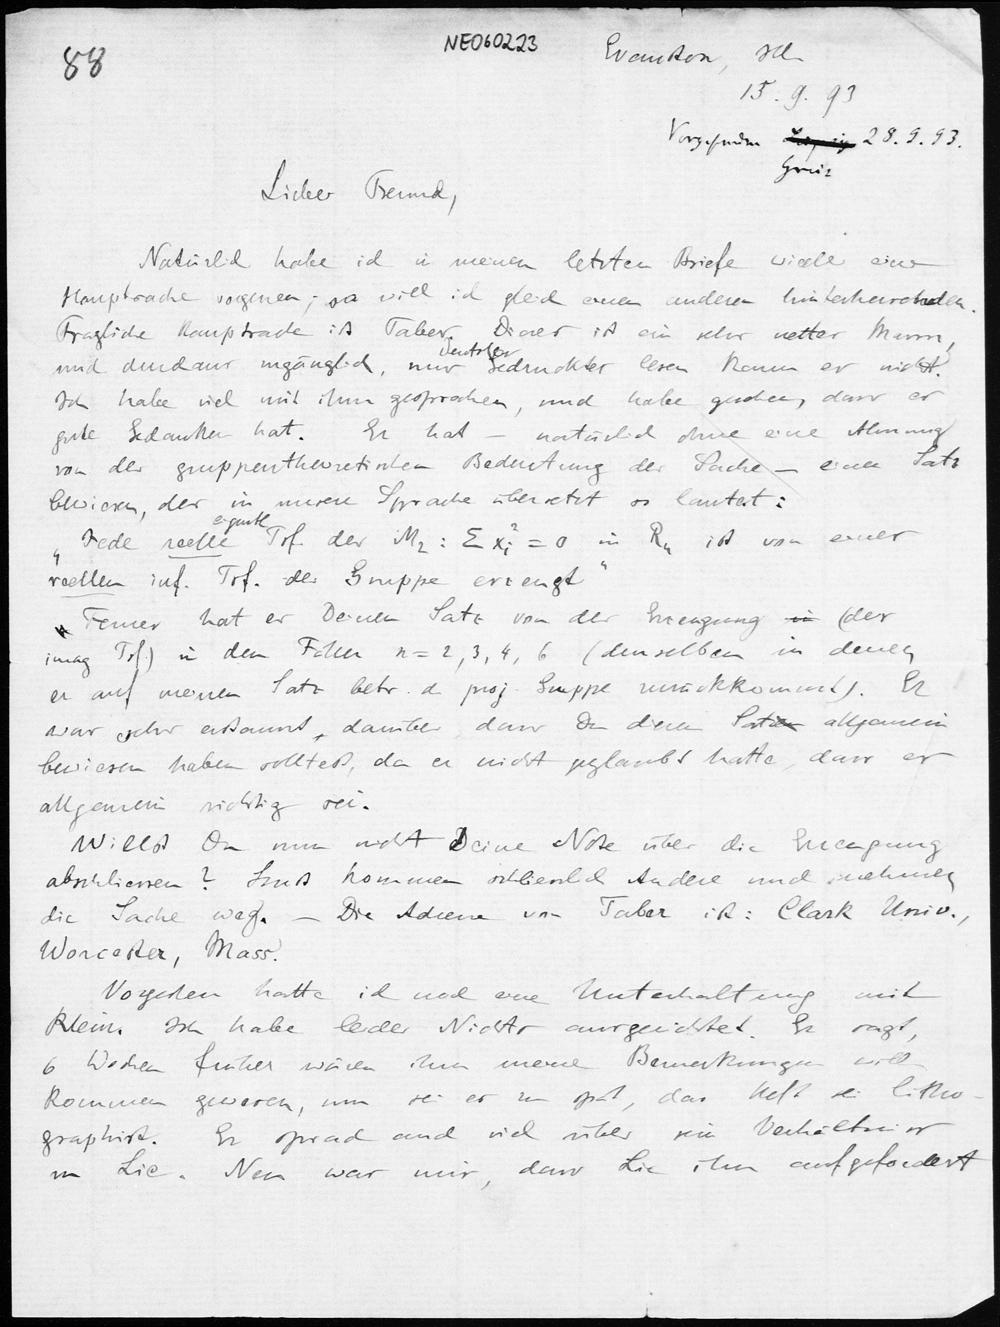 88
NE060223
Evanston, Ill
15. 9. 93
28. 9. 93.
Greiz
Lieber Freund,
Natürlich habe ich in meinem letzten Briefe wieder eine
Hauptsache vergessen; so will ich gleich einen anderen hinterhersenden.
Fragliche Hauptsache ist Taber. Dieser ist ein sehr netter Mann,
und durchaus zugänglich, nur deutsch Gedrucktes lesen kann er nicht.
Ich habe viel mit ihm gesprochen, und habe gesehen, dass er
gute Gedanken hat. Er hat – natürlich ohne eine Ahnung
von der gruppentheoretischen Bedeutung der Sache – einen Satz
bewiesen, der in unsere Sprache übersetzt so lautet:
„Jede reelle eigentl. Tsf. der M₂: Σ xᵢ² = 0 in Rₙ ist von einer
reellen inf. Tsf. der Gruppe erzeugt"
Ferner hat er Deinen Satz von der Erzeugung in (der
imag Tsf.) in den Fällen n = 2, 3, 4, 6 (denselben in denen
er auf meinen Satz betr. d. proj. Gruppe zurückkommt). Er
war sehr erstaunt, darüber, dass Du diesen Satz allgemein
bewiesen haben solltest, da er nicht geglaubt hatte, dass er
allgemein richtig sei.
Willst Du nun nicht Deine Note über die Erzeugung
abschliessen? Sonst kommen schliesslich Andere und nehmen
die Sache weg. – Die Adresse von Taber ist: Clark Univ.,
Worcester, Mass.
Vorgestern hatte ich noch eine Unterhaltung mit
Klein. Ich habe leider Nichts ausgerichtet. Er sagt,
6 Wochen früher wären ihm meine Bemerkungen will-
kommen gewesen, nun sei es zu spät, das Heft sei litho-
graphirt. Er sprach auch viel über sein Verhältniss
zu Lie. Neu war mir, dass Lie ihn aufgefordert